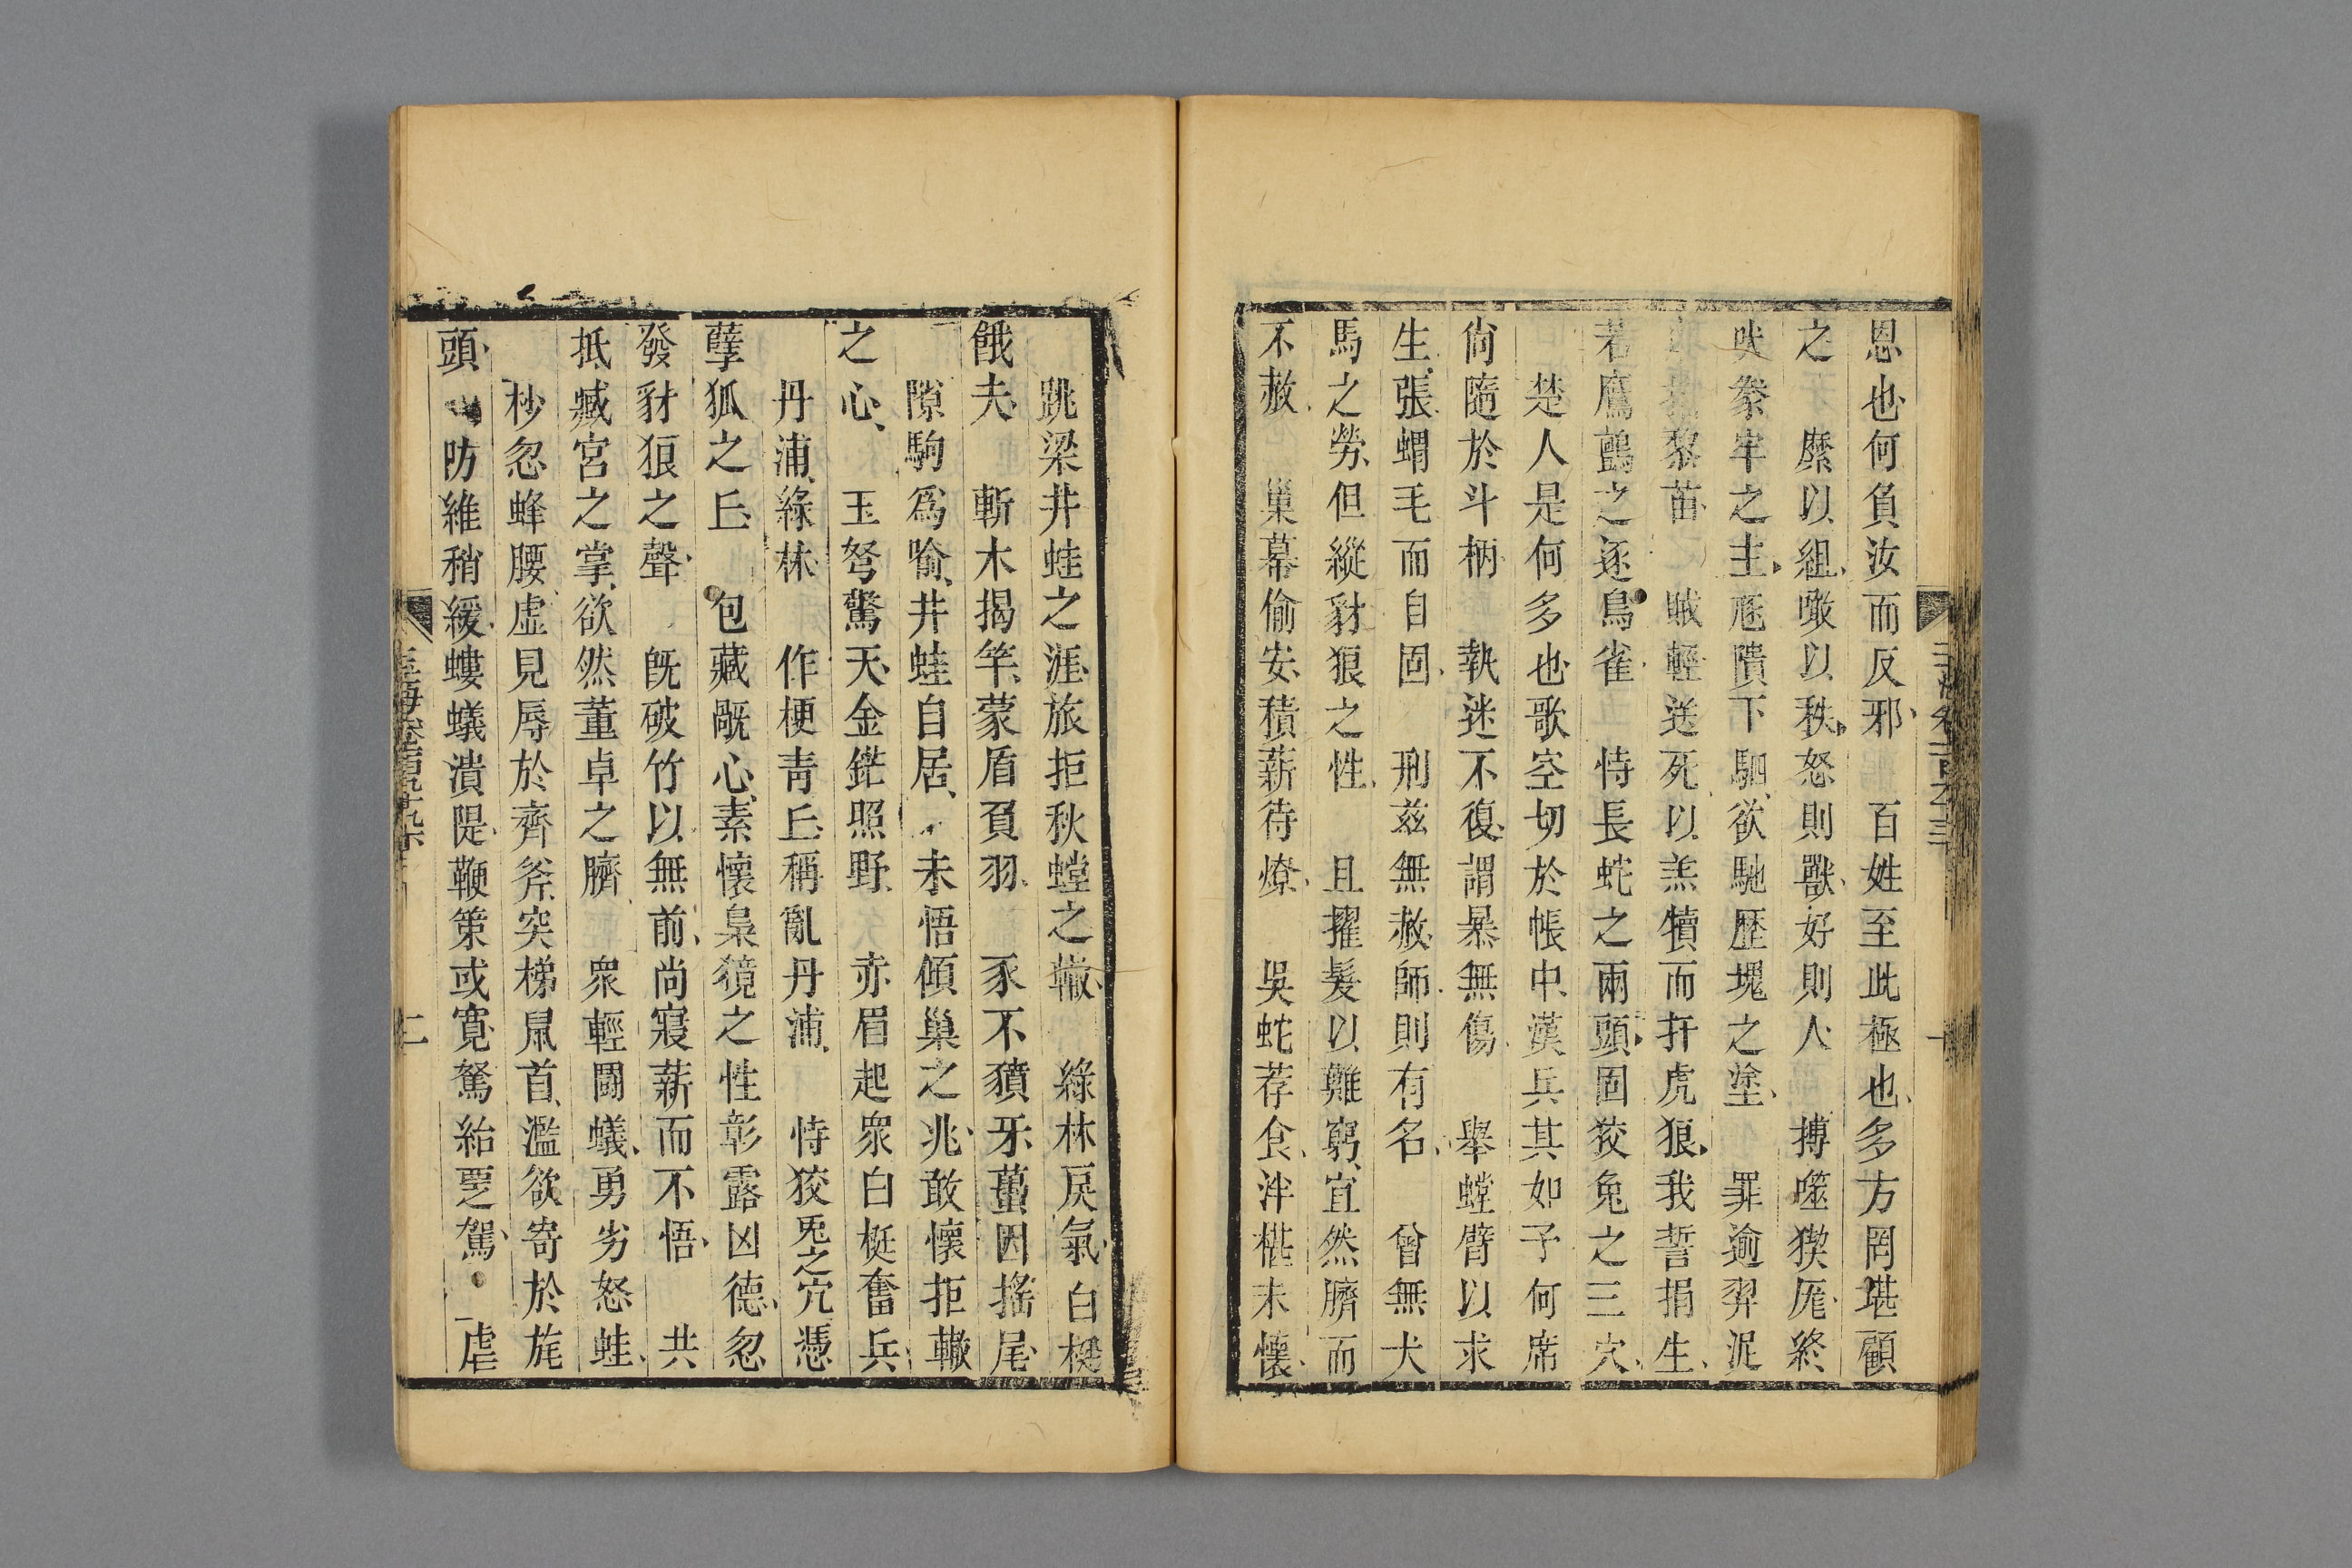 恩也何負汝而反邪　百姓至此極也多方罔堪顧
之　縻以組噉以秩怒則獸好則人　搏噬猰㕒終
吠豢牢之主尫隤下駟欲馳歷塊之塗　罪逾羿泥
黎苗　賊輕送死以羔犢而扞虎狼我誓捐生
若鷹鸇之逐鳥雀　恃長蛇之兩頭固狡兔之三穴
楚人是何多也歌空切於帳中漢兵其如予何席
尙隨於斗柄　執迷不復謂暴無傷　舉螳臂以求
生張蝟毛而自固　刑茲無赦師則有名　曾無犬
馬之勞但縱豺狼之性　且擢髮以難窮宜然臍而
不赦　巢幕偷安積薪待燎　吳蛇荐食泮椹未懷
跳梁井蛙之涯旅拒秋螳之轍　綠林戾氣白梃
餓夫　斬木揭竿蒙盾負羽　豕不豶牙蠆因搖尾
隙駒爲喻井蛙自居　未悟傾巢之兆敢懷拒轍
之心　玉弩驚天金鋩照野　赤眉起衆白梃奮兵
丹浦綠林　作梗靑丘稱亂丹浦　恃狡兎之穴憑
孽狐之丘　包藏戕心素懷梟獍之性彰露凶德忽
發豺狼之聲　旣破竹以無前尚寢薪而不悟　共
抵臧宮之掌欲然董卓之臍　衆輕鬭蟻勇劣怒蛙
杪忽蜂腰虛見辱於齊斧突梯鼠首濫欲寄於旄
頭　防維稍緩螻蟻潰隄鞭策或寬駑紿覂駕　虐